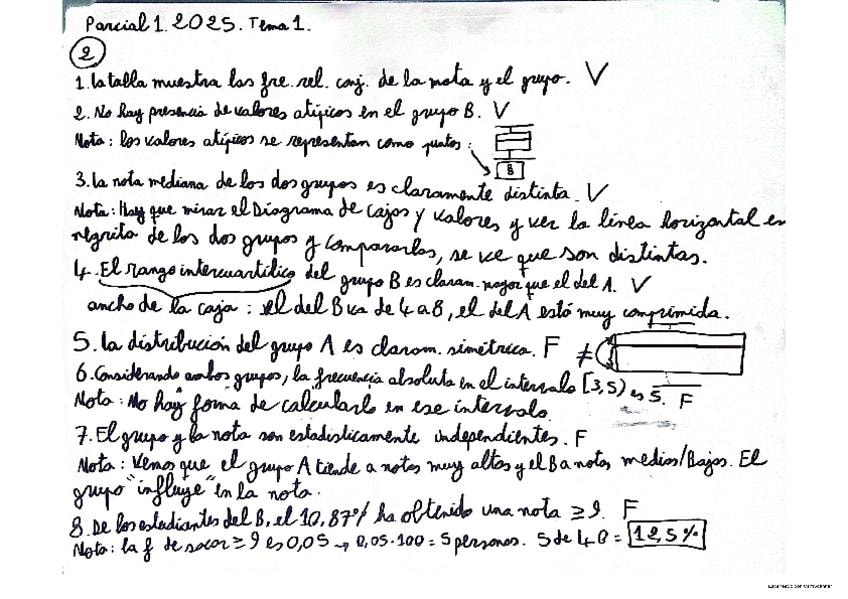 Parcial 1. 2025. Tema 1.
2
1. la talla muestra las fre. rel. conj. de la nota y el grupo. V
2. No hay presencia de valores atípicos en el grupo B. V
Nota: los valores atípicos se representan como puntos:
8
3. la nota mediana de los dos grupos es claramente distinta. V
Nota: Hay que mirar el Diagrama de cajas y valores y ver la línea horizontal en
negrita de los dos grupos y compararlos, se ve que son distintas.
4. El rango intercuartílico del grupo B es claram. mayor que el del A. V
ancho de la caja: el del B va de 4 a 8, el del A está muy comprimida.
5. la distribución del grupo A es claram. simétrica. F ≠
6. Considerando ambos grupos, la frecuencia absoluta en el intervalo [3,5) es 5. F
Nota: "No hay" forma de calcularlo en ese intervalo
7. El grupo y la nota son estadísticamente independientes. F
Nota: Vemos que el grupo A tiende a notas muy altas y el B a notas medias/Bajas. El
grupo "influye" en la nota.
8. De los estudiantes del B, el 10,87% ha obtenido una nota ≥ 9. F
Nota: la f de sacar ≥ 9 es 0,05 → 0,05·100 = 5 personas. 5 de 40 = 12,5%